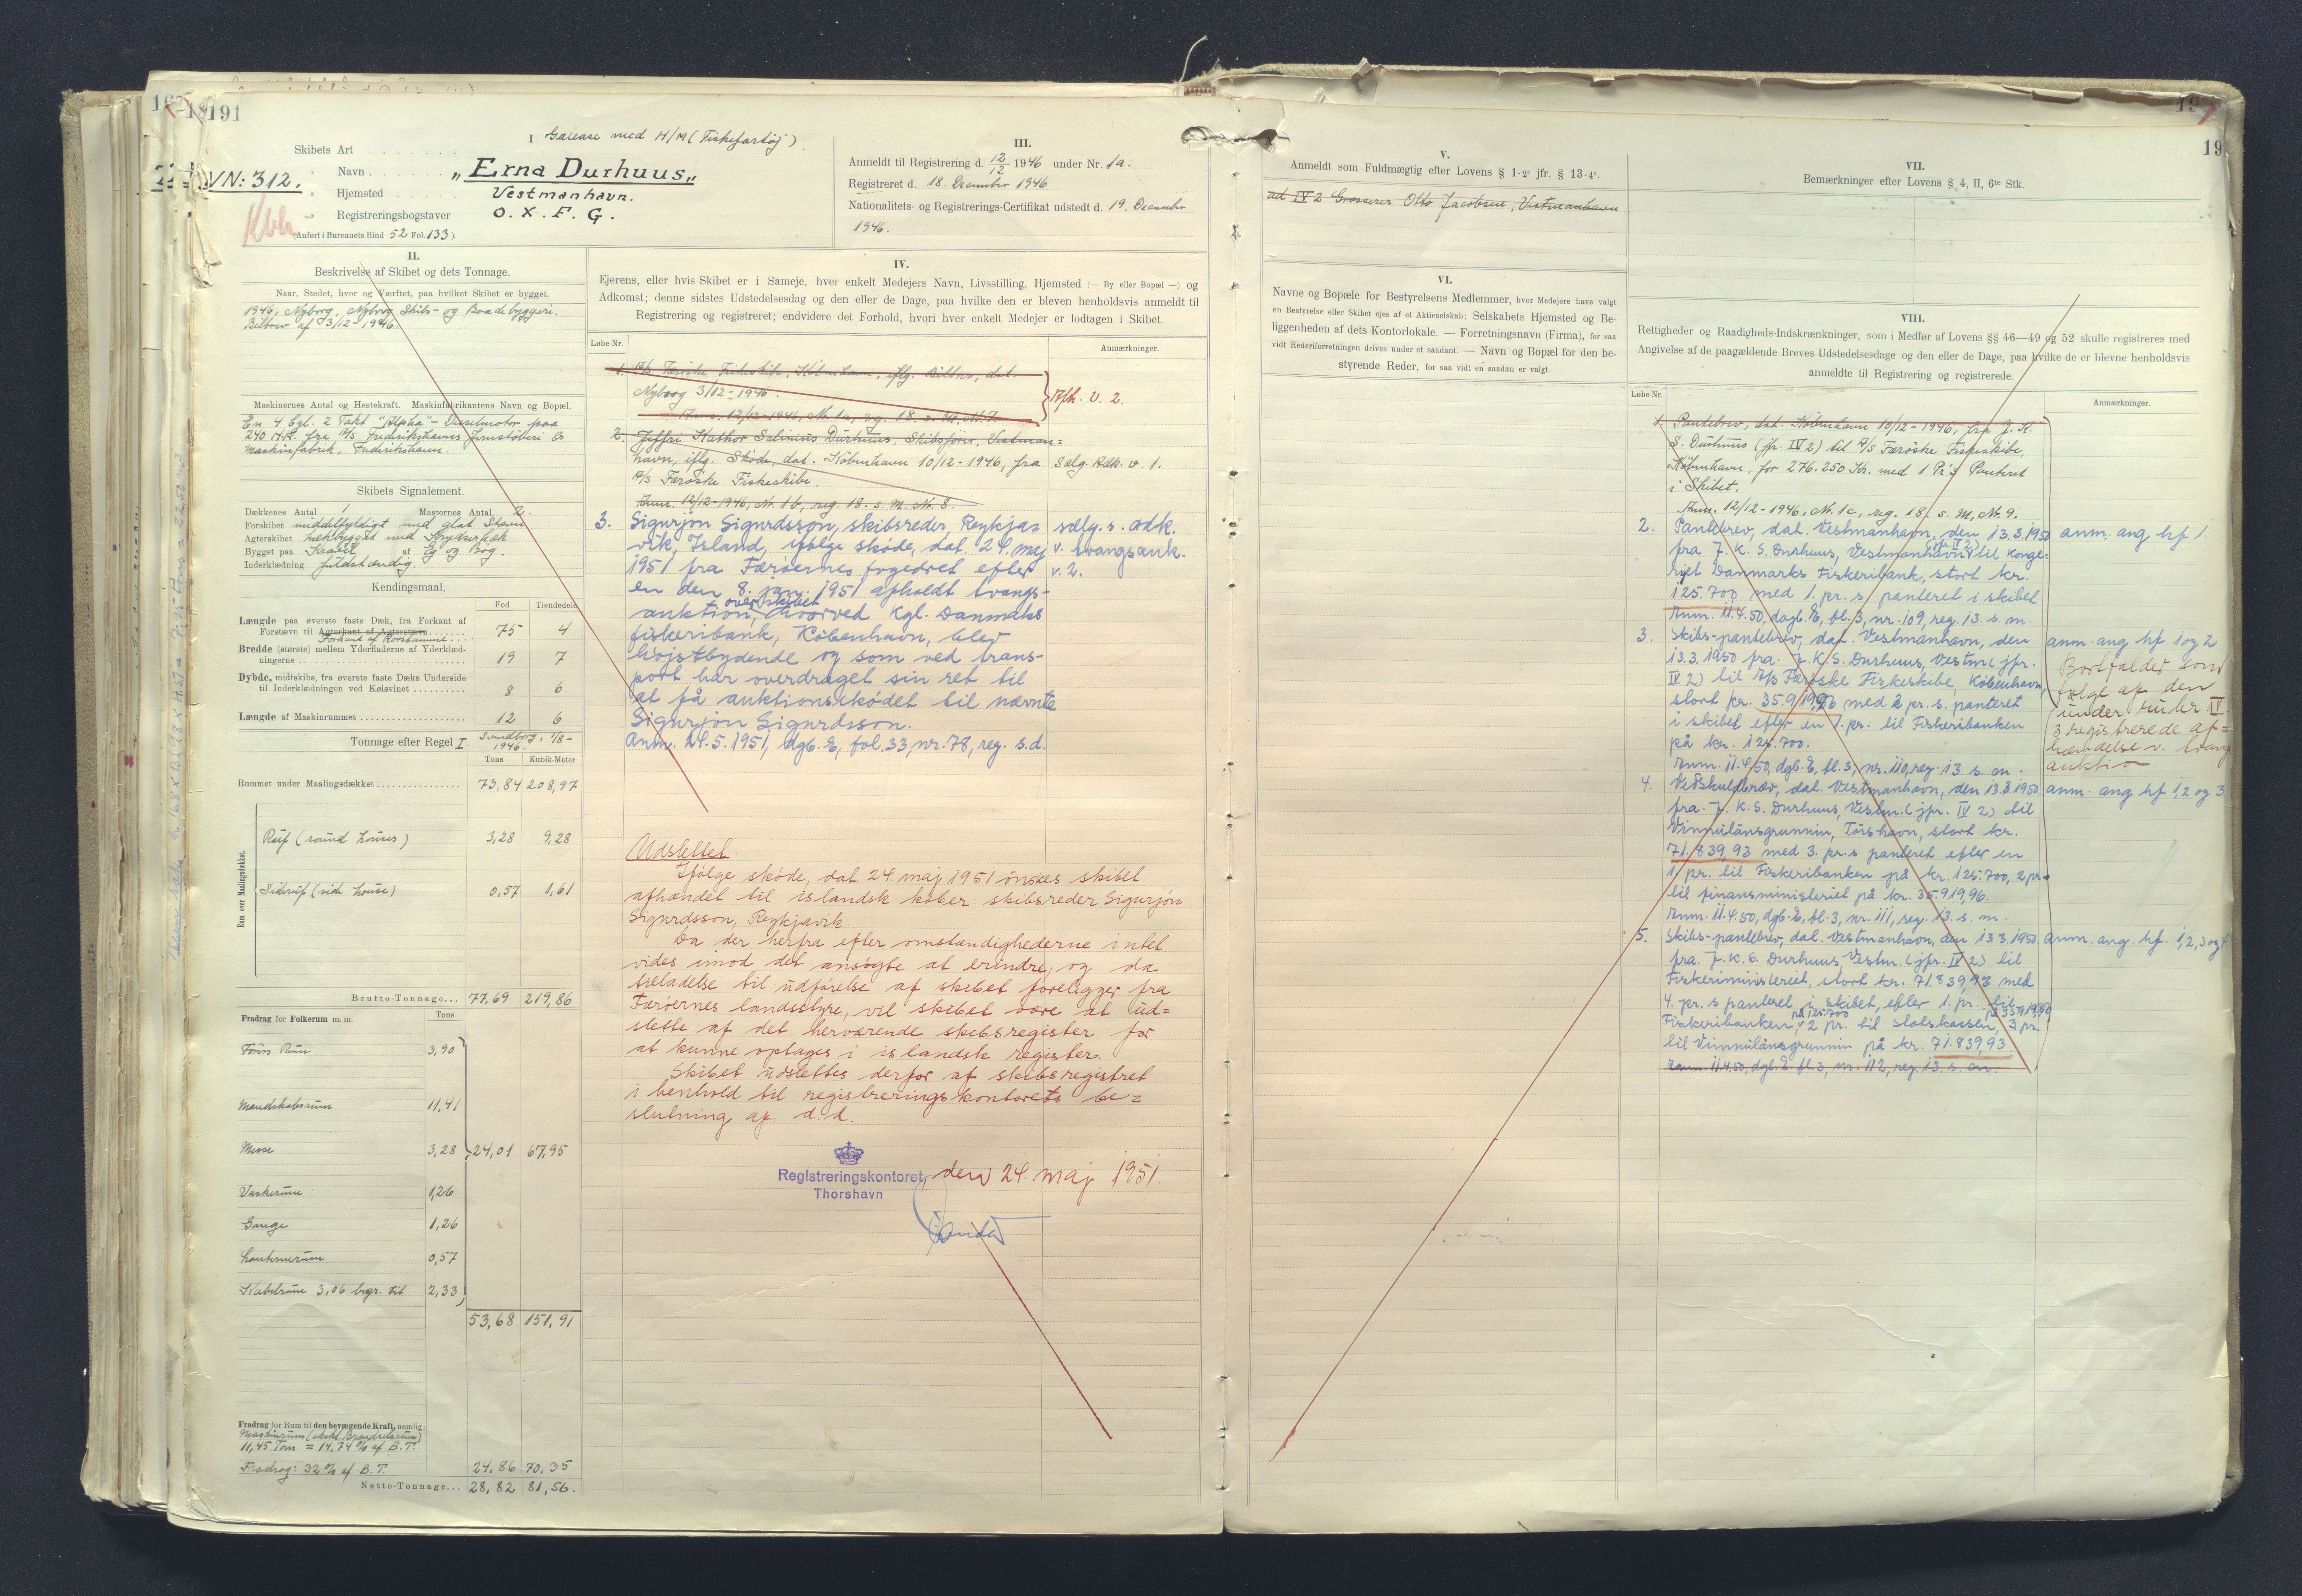 191
VN: 312.
I
Skibets Art Galease med H/M (Fiskefartøj)
Navn "Erna Durhuus"
Hjemsted Vestmanhavn.
Registreringsbogstaver O. X. F. G.
(Anført i Bureauets Bind 52 Fol. 133).
III.
Anmeldt til Registrering d. 12/12 1946 under Nr. 1a.
Registreret d. 18. December 1946
Nationalitets- og Registrerings-Certifikat udstedt d. 19. December
1946.
II.
Beskrivelse af Skibet og dets Tonnage.
Naar, Stedet, hvor og Værftet, paa hvilket Skibet er bygget.
1946, Nyborg, Nyborg Skibs- og Baadebyggeri.
Bilbrev af 3/12-1946.
Maskinernes Antal og Hestekraft. Maskinfabrikantens Navn og Bopæl.
En 4 Cyl. 2 Takt "Alpha"-Dieselmotor paa
240 H.K. fra A/S Frederikshavns Jernstøberi &
Maskinfabrik, Frederikshavn.
Skibets Signalement.
Dækkenes Antal 1 Masternes Antal 2
Forskibet middelfyldigt med glat Stævn
Agterskibet hækbygget med Krydserhæk
Bygget paa Kravel af Eg og Bøg.
Inderklædning fuldstændig.
Kendingsmaal.
Fod Tiendedele
Længde paa øverste faste Dæk, fra Forkant af
Forstævn til Agterkant af Agterstævn 75 4
Forkant af Rorstamme
Bredde (største) mellem Yderfladerne af Yderklæd-
ningerne 19 7
Dybde, midtskibs, fra øverste faste Dæks Underside
til Inderklædningen ved Kølsvinet 8 6
Længde af Maskinrummet 12 6
Tonnage efter Regel I Svendborg, 1/8-
1946.
Tons Kubik-Meter
Rummet under Maalingsdækket 73,84 208,97
Rum over Maalingsdækket.
Ruf (round houses) 3,28 9,28
Sideruf (side house) 0,57 1,61
Brutto-Tonnage... 77,69 219,86
Fradrag for Folkerum m. m. Tons
Førers Rum 3,90
Mandskabsrum 11,41
Messe 3,28 24,01 67,95
Vaskerum 1,26
Gange 1,26
Lanternerum 0,57
Kabelrum 3,06 begr. til 2,33
53,68 151,91
Fradrag for Rum til den bevægende Kraft, nemlig:
Maskinrum (ekskl. Brændselsrum)
11,45 Tons = 14,74 % af B.T.
Fradrag: 32 % af B.T. 24,86 70,35
Netto-Tonnage... 28,82 81,56.
IV.
Ejerens, eller hvis Skibet er i Sameje, hver enkelt Medejers Navn, Livsstilling, Hjemsted (— By eller Bopæl —) og
Adkomst; denne sidstes Udstedelsesdag og den eller de Dage, paa hvilke den er bleven henholdsvis anmeldt til
Registrering og registreret; endvidere det Forhold, hvori hver enkelt Medejer er lodtagen i Skibet.
Løbe-Nr. Anmærkninger.
1. A/S Færøske Fiskeskibe, København, iflg. Bilbrev, dat.
Nyborg 3/12-1946. Afh. v. 2.
Anm. 12/12-1946, Nr. 1a, reg. 18. s. M., Nr. 7
2. Jeffri Kathor Salinius Durhuus, Skibsfører, Vestman=
havn, iflg. Skøde, dat. København 10/12-1946, fra Sælg. Adk. v. 1.
A/S Færøske Fiskeskibe.
Anm. 12/12-1946, Nr. 1b, reg. 18. s. M. Nr. 8.
3. Sigurjón Sigurdsson, skibsreder, Reykja= sælg. s. adk.
vik, Island, ifølge skøde, dat. 24. maj v. tvangsauk.
1951 fra Færøernes fogedret efter v. 2.
en den 8. jan. 1951 afholdt tvangs-
auktion over skibet, hvorved Kgl. Danmarks
fiskeribank, København, blev
højstbydende og som ved trans-
port har overdraget sin ret til
at få auktionsskødet til nævnte
Sigurjón Sigurdsson.
Anm. 24.5.1951, dgb. E, fol. 33, nr. 78, reg. s.d.
Udslettet
Ifølge skøde, dat. 24. maj 1951 ønskes skibet
afhændet til islandsk køber skibsreder Sigurjón
Sigurdsson, Reykjavik.
Da der herfra efter omstændighederne intet
vides imod det ansøgte at erindre, og da
tilladelse til udførelse af skibet foreligger fra
Færøernes landsstyre, vil skibet være at ud=
slette af det herværende skibsregister for
at kunne optages i islandsk register.
Skibet udslettes derfor af skibsregistret
i henhold til registreringskontorets be=
slutning af d. d.
Registreringskontoret, den 24. maj 1951.
Thorshavn
V.
Anmeldt som Fuldmægtig efter Lovens § 1-2° jfr. § 13-4°.
ad IV 2 Grosserer Otto Jacobsen, Vestmanhavn
VI.
Navne og Bopæle for Bestyrelsens Medlemmer, hvor Medejere have valgt
en Bestyrelse eller Skibet ejes af et Aktieselskab: Selskabets Hjemsted og Be-
liggenheden af dets Kontorlokale. — Forretningsnavn (Firma), for saa
vidt Rederiforretningen drives under et saadant. — Navn og Bopæl for den be-
styrende Reder, for saa vidt en saadan er valgt.
VII.
Bemærkninger efter Lovens § 4, II, 6te Stk.
19
VIII.
Rettigheder og Raadigheds-Indskrænkninger, som i Medfør af Lovens §§ 46—49 og 52 skulle registreres med
Angivelse af de paagældende Breves Udstedelsesdage og den eller de Dage, paa hvilke de er blevne henholdsvis
anmeldte til Registrering og registrerede.
Løbe-Nr. Anmærkninger.
1. Pantebrev, dat. København 10/12-1946, fra J. K.
S. Durhuus (jfr. IV 2) til A/S Færøske Fiskeskibe,
København, for 276.250 Kr. med 1 Pr's Panteret
i Skibet.
Anm. 12/12-1946, Nr. 1c, reg. 18. s. M., Nr. 9.
2. Pantebrev, dat. Vestmanhavn, den 13.3.1950 anm. ang. hf 1.
fra J. K. S. Durhuus, Vestmanhavn (jfr. IV 2) til Konge=
riget Danmarks Fiskeribank, stort kr.
125.700 med 1. pr. s panteret i skibet
Anm. 11.4.50, dagb. E, bl. 3, nr. 109, reg. 13. s. m.
3. Skibs-pantebrev, dat. Vestmanhavn, den anm. ang. hf 1 og 2
13.3.1950 fra J. K. S. Durhuus, Vestm. (jfr. Bortfalder som
IV 2) til A/S Færøske Fiskeskibe, København, følge af den
stort kr. 35.919,96 med 2 pr. s. panteret under rubr. IV
i skibet efter en 1. pr. til Fiskeribanken 3 registrerede af=
på kr. 125.700. hændelse v. tvang
Anm. 11.4.50, dgb. E, bl. 3, nr. 110, reg. 13. s. m. auktion
4. Vedskuldbrev, dat. Vestmanhavn, den 13.3.1950 anm. ang. hf 1, 2 og 3.
fra J. K. S. Durhuus, Vestm. (jfr. IV 2) til
Vinnulánsgrunnin, Tórshavn, stort kr.
71.839,93 med 3. pr. s panteret efter en
1 pr. til Fiskeribanken på kr. 125.700, 2 pr.
til finansministeriet på kr. 35.919,96.
Anm. 11.4.50, dgb. E, bl. 3, nr. 111, reg. 13. s. m.
5. Skibs-pantebrev, dat. Vestmanhavn, den 13.3.1950 anm. ang. hf. 1, 2, 3 og
fra J. K. S. Durhuus, Vestm. (jfr. IV 2) til
Fiskeriministeriet, stort kr. 71.839,93 med
4. pr. s panteret i skibet, efter 1. pr. til
Fiskeribanken på 125.700, 2 pr. til Statskassen på 35.919,96, 3 pr.
til Vinnulánsgrunnin på kr. 71.839,93
Anm. 11.4.50, dgb. E. bl. 3, nr. 112, reg. 13. s. m.